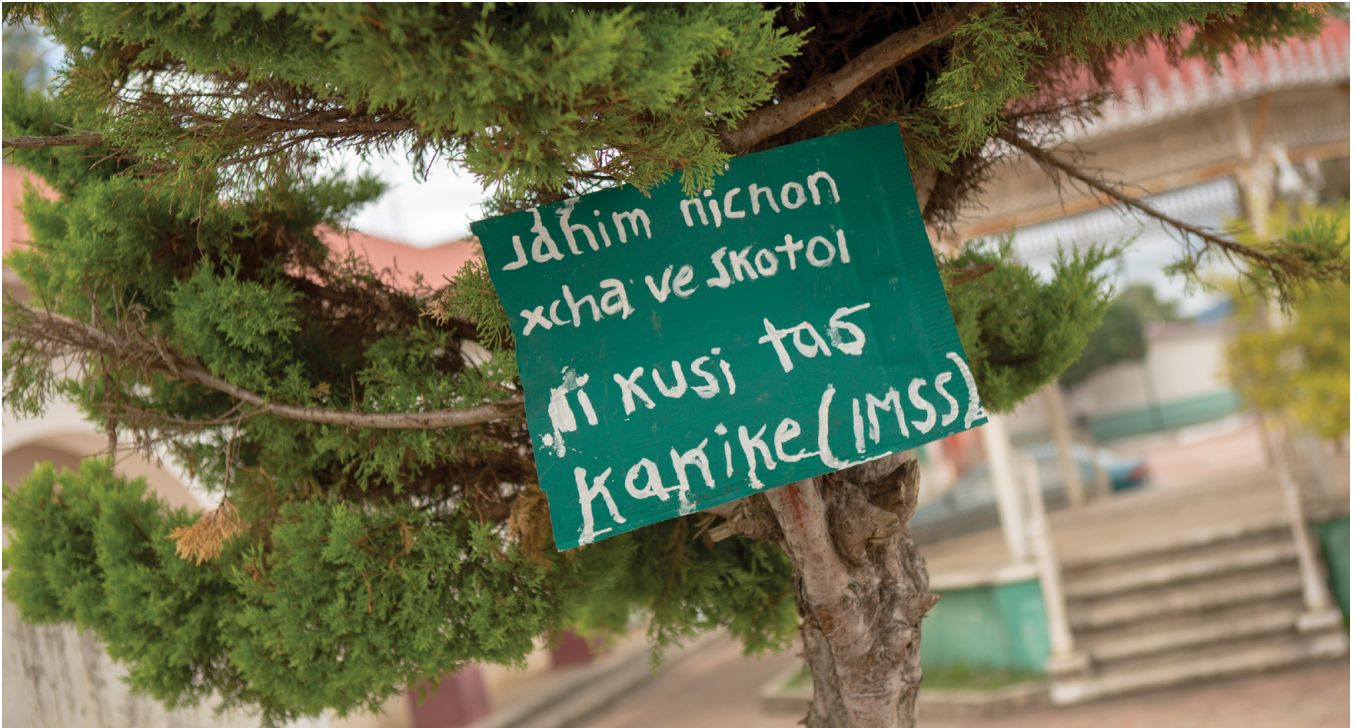 Jähim nijchan
xcha ve skotol
ri kusi tas
kakike (IMSS)